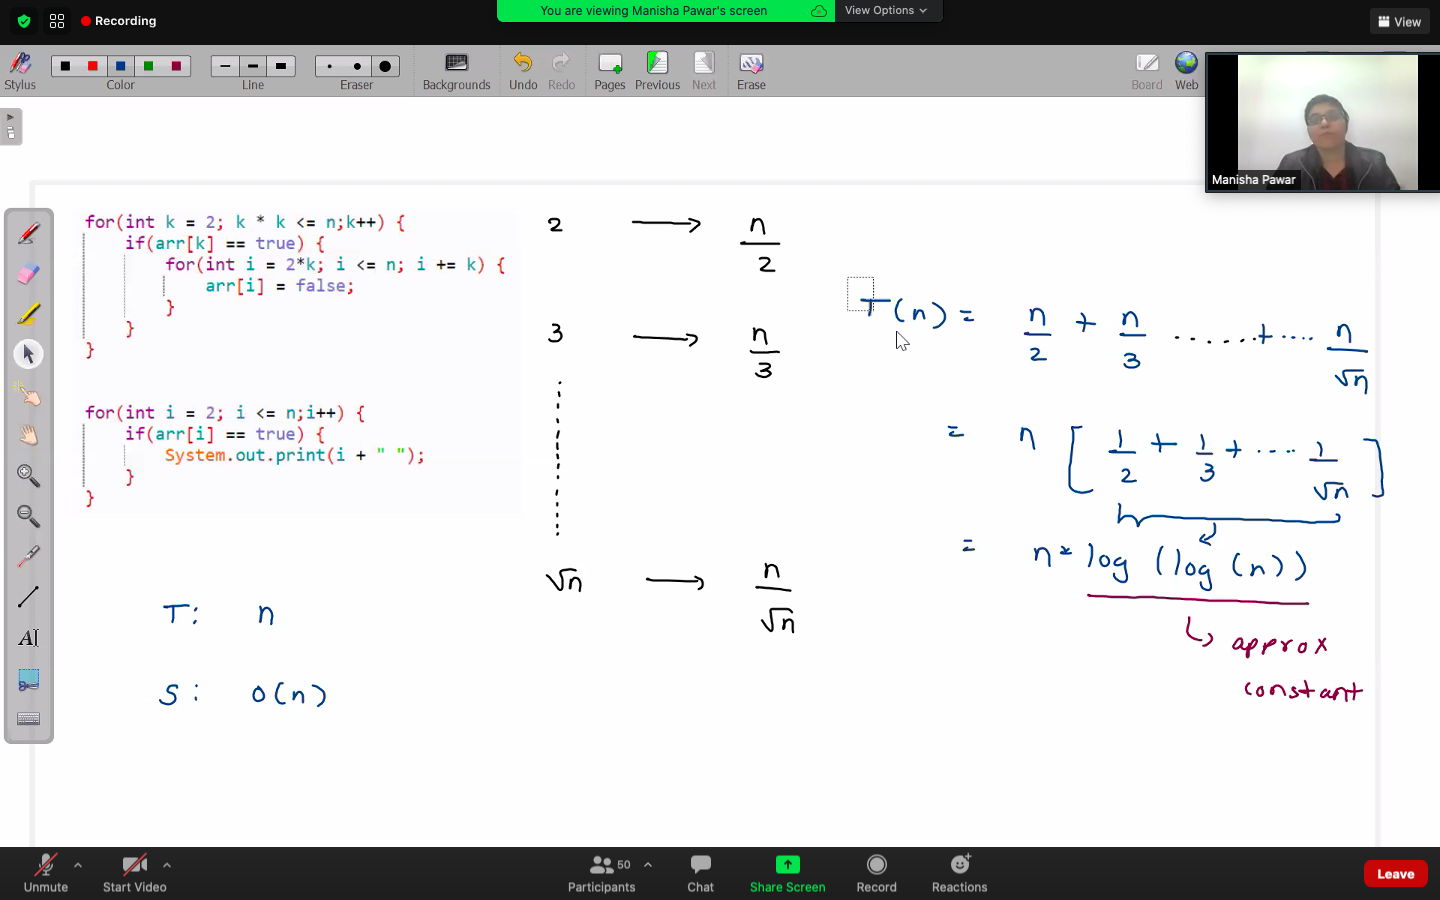 Recording
You are viewing Manisha Pawar's screen
View Options
View
Stylus
Color
Line
Eraser
Backgrounds
Undo
Redo
Pages
Previous
Next
Erase
Board
Web
Manisha Pawar
for(int k = 2; k * k <= n;k++) {
if(arr[k] == true) {
for(int i = 2*k; i <= n; i += k) {
arr[i] = false;
}
}
}
for(int i = 2; i <= n;i++) {
if(arr[i] == true) {
System.out.print(i + " ");
}
}
T: n
S: O(n)
2 → n/2
3 → n/3
√n → n/√n
T(n) = n/2 + n/3 ......+.... n/√n
= n [ 1/2 + 1/3 + .... 1/√n ]
= n * log (log (n))
↳ approx
constant
AI
Unmute
Start Video
Participants
50
Chat
Share Screen
Record
Reactions
Leave